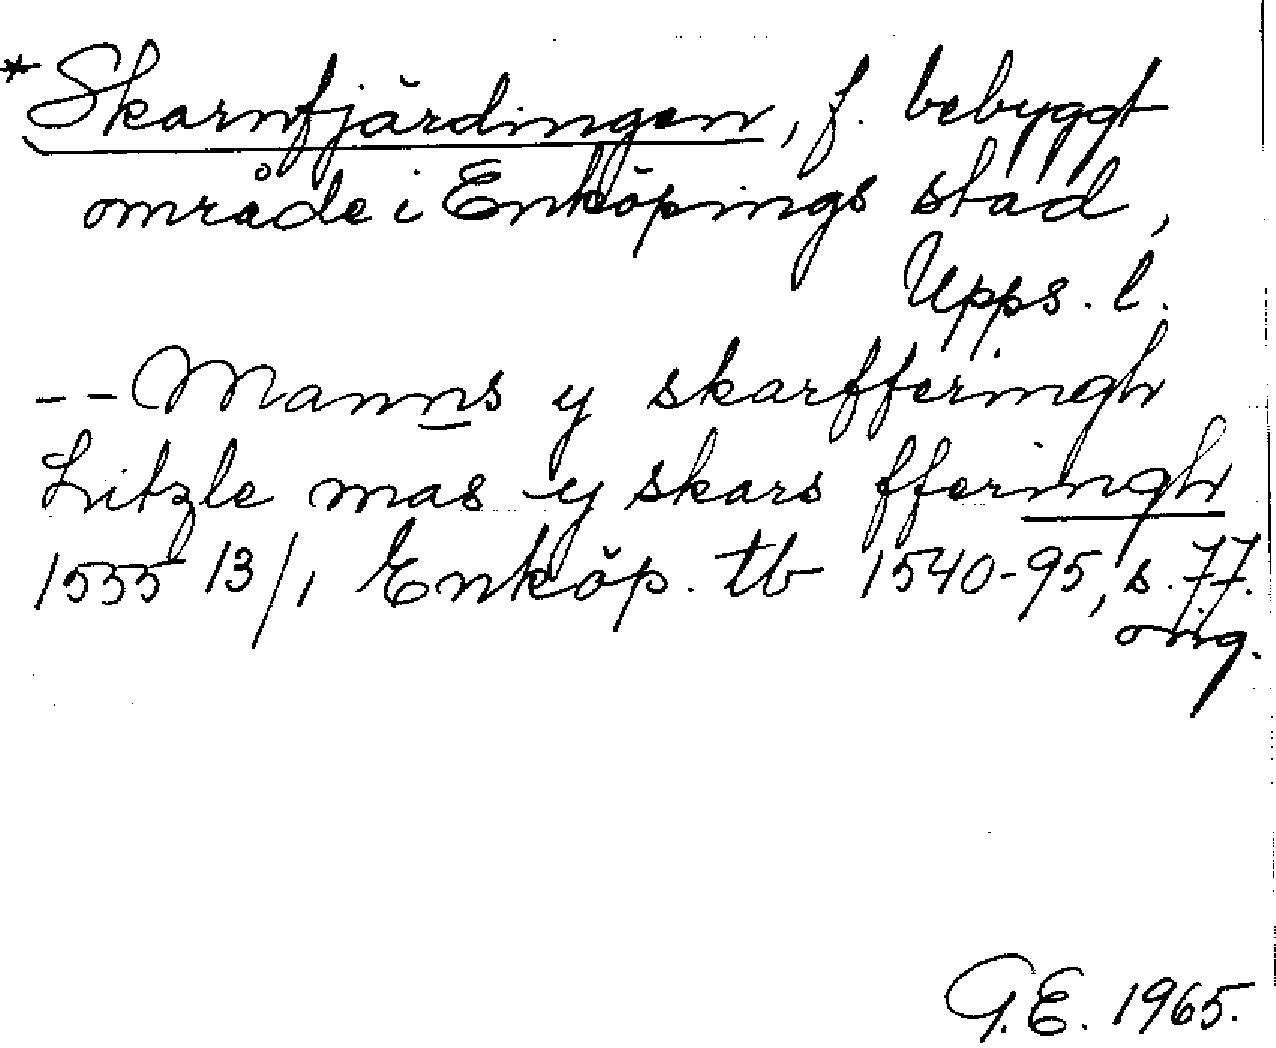 *Skarnfjärdingen, f. bebyggt
område i Enköpings stad,
Upps. l.
-- Manns y skarfferingh
Litzle mas y skars fferingh
1555 13/1 Enköp. tb 1540-95, s. 77.
orig.
G.E. 1965.